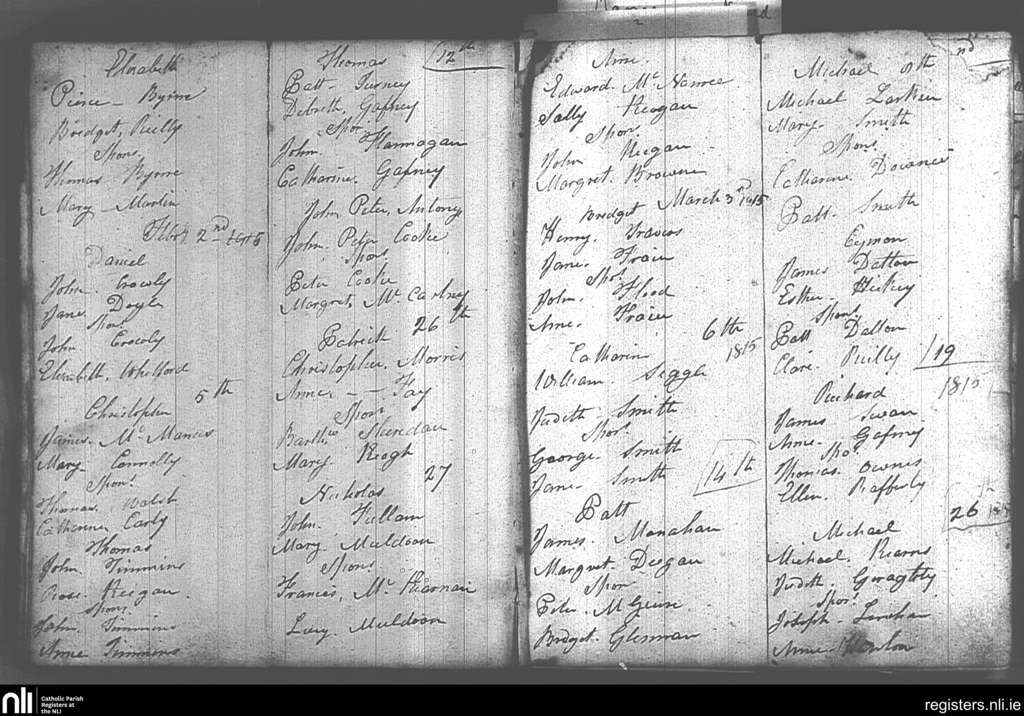 Elizabeth
Pierce - Byrne
Bridget, Reilly
Spons.
Thomas Byrne
Mary - Martin
Febry 2nd 1815
Daniel
John Crowly
Jane Doyle
Spor.
John Crowly
Elizabeth, Whelford
5th
Christopher
James. Mc Manus
Mary Connolly
Spons.
Thomas Walsh
Catherine Early
Thomas
John. Timmins
Rose. Keegan
Spons.
John. Timmins
Anne Timmins
12th
Thomas
Patt - Furney
Gafney
Spor
John Flannagan
Catharine. Gafney
John Peter, Antony
John. Peter Cooke
Spors
Peter Cooke
Margret, Mc Cartney
26th
Patrick
Christopher, Morris
Anne - Fay
Spors
Barthw Sheridan
Mary Keogh
27
Nicholas
John. Fullam
Mary. Muldoon
Spons
Frances, Mc Kiernan
Lucy. Muldoon
Anne.
Edward. Mc Namee
Sally Keegan
Spons
John Keegan
Margret. Browne
Bridget March 3rd 1815
Henry. Francis
Jane. Fraier
Spos.
John. Flood
Anne. Fraier
6th
Catharin 1815
William. Siggle
Judeth. Smith
Spor.
George. Smith
Jane. Smith
14th
Patt
James. Monahan
Margret. Deegan
Spor
Peter. McGuire
Bridget. Glennan
nd
Michael 9th
Michael Larkin
Mary. Smith
Spons.
Catharine. Downes
Patt. Smith
Eymon
James Dalton
Esther. Hickey
Spons.
Patt Dalton
Clare. Reilly
19
1815
Richard
James Swan
Anne. Gafney
Spo.
Thomas. Ownes
Ellen. Rafferty
26th
Michael
Michael Kearns
Judeth. Geraghty
Spor.
Joseph. Linehan
Anne.
nli
Catholic Parish
Registers at
the NLI
registers.nli.ie